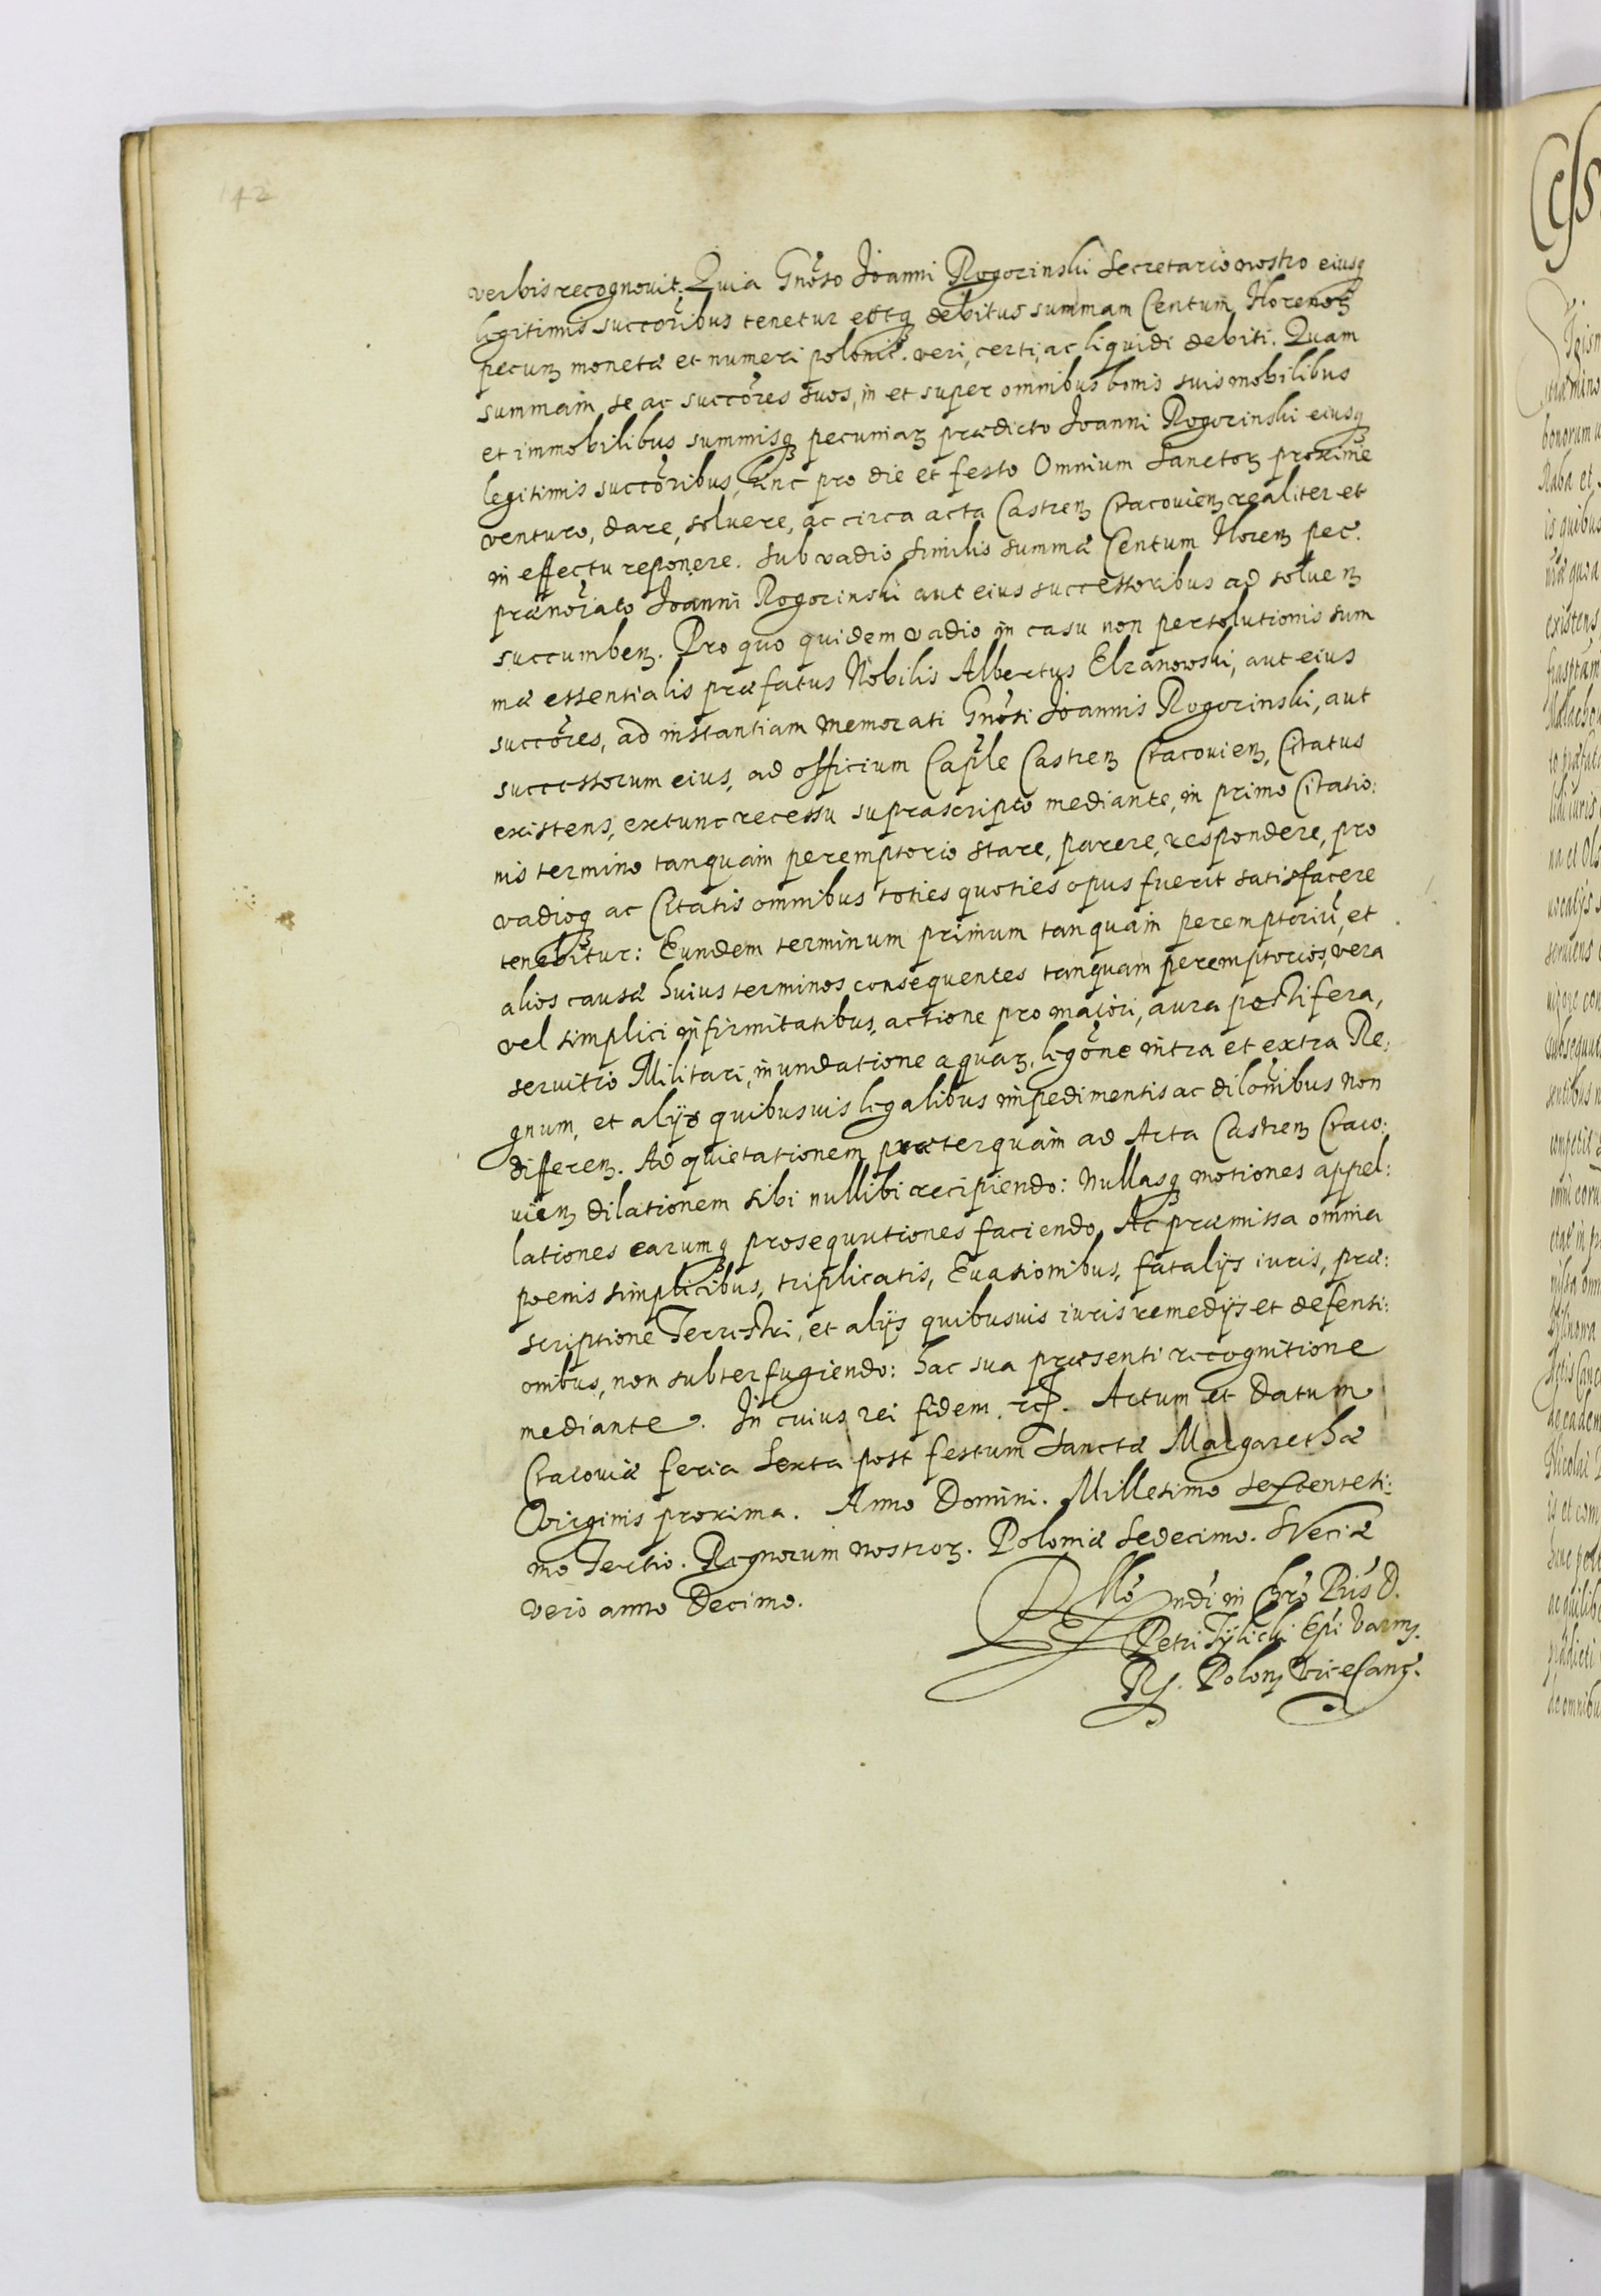 142
verbis recognovit, Quia Gnõso Joanni Rogozinski Secretario nostro eiusq
legitimis succõribus tenetur estq debitus summam Centum Florenoꝝ
pecunꝫ monetæ et numeri polonic. veri, certi, ac liquidi debiti. Quam
summam, se ac succõres suos, in et super omnibus bonis suis mobilibus
et immobilibus summisq pecuniaꝝ prædicto Joanni Rogozinski eiusq
legitimis succõribus, hinc pro die et festo Omnium Sanctoꝝ proxime
venturo, dare, solvere, ac circa acta Castrenꝫ Cracovienꝫ realiter et
in effectu reponere. Sub vadio similis summæ Centum Florenꝫ pec.
prænoĩato Joanni Rogozinski aut eius successoribus ad solvenꝫ
succumbenꝫ. Pro quo quidem vadio in casu non persolutionis sum
mæ essentialis præfatus Nobilis Albertus Elzanowski, aut eius
succõres, ad instantiam memorati Gnõsi Joannis Rogozinski, aut
successorum eius, ad officium Capĩle Castrenꝫ Cracovienꝫ, Citatus
existens, extunc recessu suprascripto mediante, in primo Citatio:
nis termino tanquam peremptorio stare, parere, respondere, pro
vadioq ac Citatis omnibus toties quoties opus fuerit satisfacere
tenebitur: Eundem terminum primum tanquam peremptoriũ, et
alios causæ huius terminos consequentes tanquam peremptorios, vera
vel simplici infirmitatibus, actione pro maiori, aura pestifera,
servitio Militari, inundatione aquaꝝ, legõne intra et extra Re:
gnum, et alijs quibusvis legalibus impedimentis ac dilõnibus non
differenꝫ. Ad quietationem præterquam ad Acta Castrenꝫ Craco:
vienꝫ dilationem sibi nullibi recipiendo: Nullasq motiones appel:
lationes earumq prosequutiones faciendo, Ac præmissa omnia
poenis simplicibus, triplicatis, Evasionibus, fatalijs iuris, præ:
scriptione Terrestri, et alijs quibusvis iuris remedijs et defensi:
onibus, non subterfugiendo: hac sua præsenti recognitione
mediante. In cuius rei fidem. rcʃ. Actum et Datum
Cracoviæ feria Sexta post festum Sanctæ Margarethæ
Virginis proxima. Anno Domini. Millesimo sexcentesi:
mo Tertio. Regnorum nostroꝝ. Poloniæ Sedecimo. Sveciæ
vero anno Decimo.
Rllõ ndi in Chrõ Pris D.
Petri Tylicki Epi Varmꝫ.
R. Polonꝫ Vicecanc.